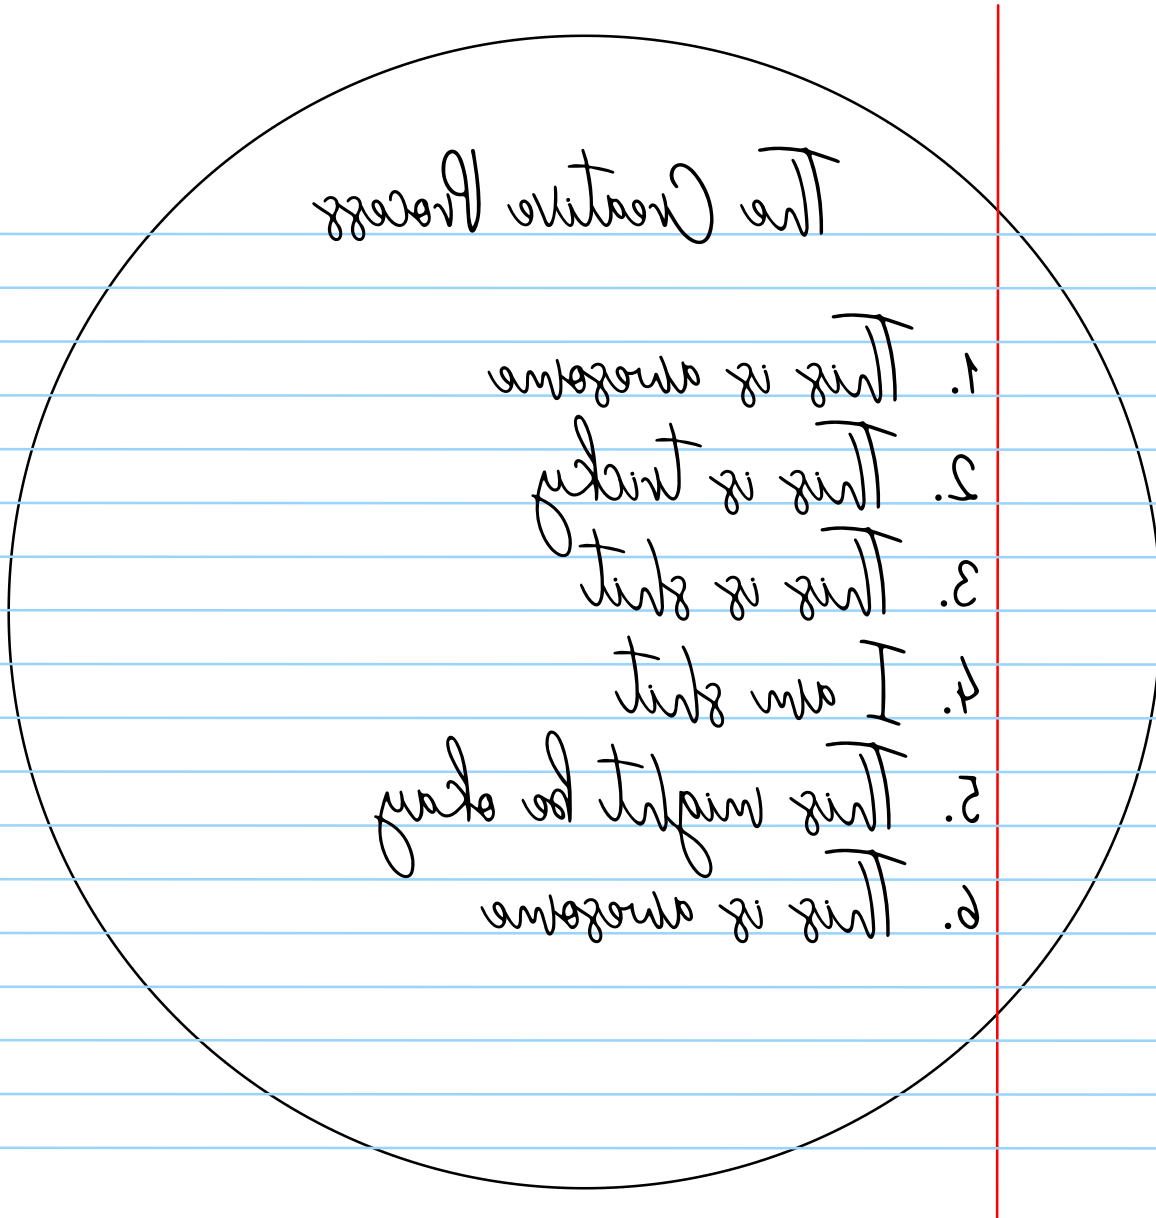 The Creative Process
1. This is awesome
2. This is tricky
3. This is shit
4. I am shit
5. This might be okay
6. This is awesome